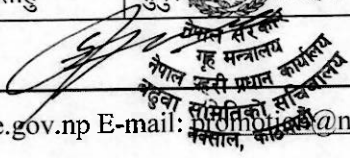 नेपाल सरकार
गृह मन्त्रालय
नेपाल प्रहरी प्रधान कार्यालय
बढुवा समितिको सचिवालय
नक्साल, काठमाडौं
e.gov.np E-mail: